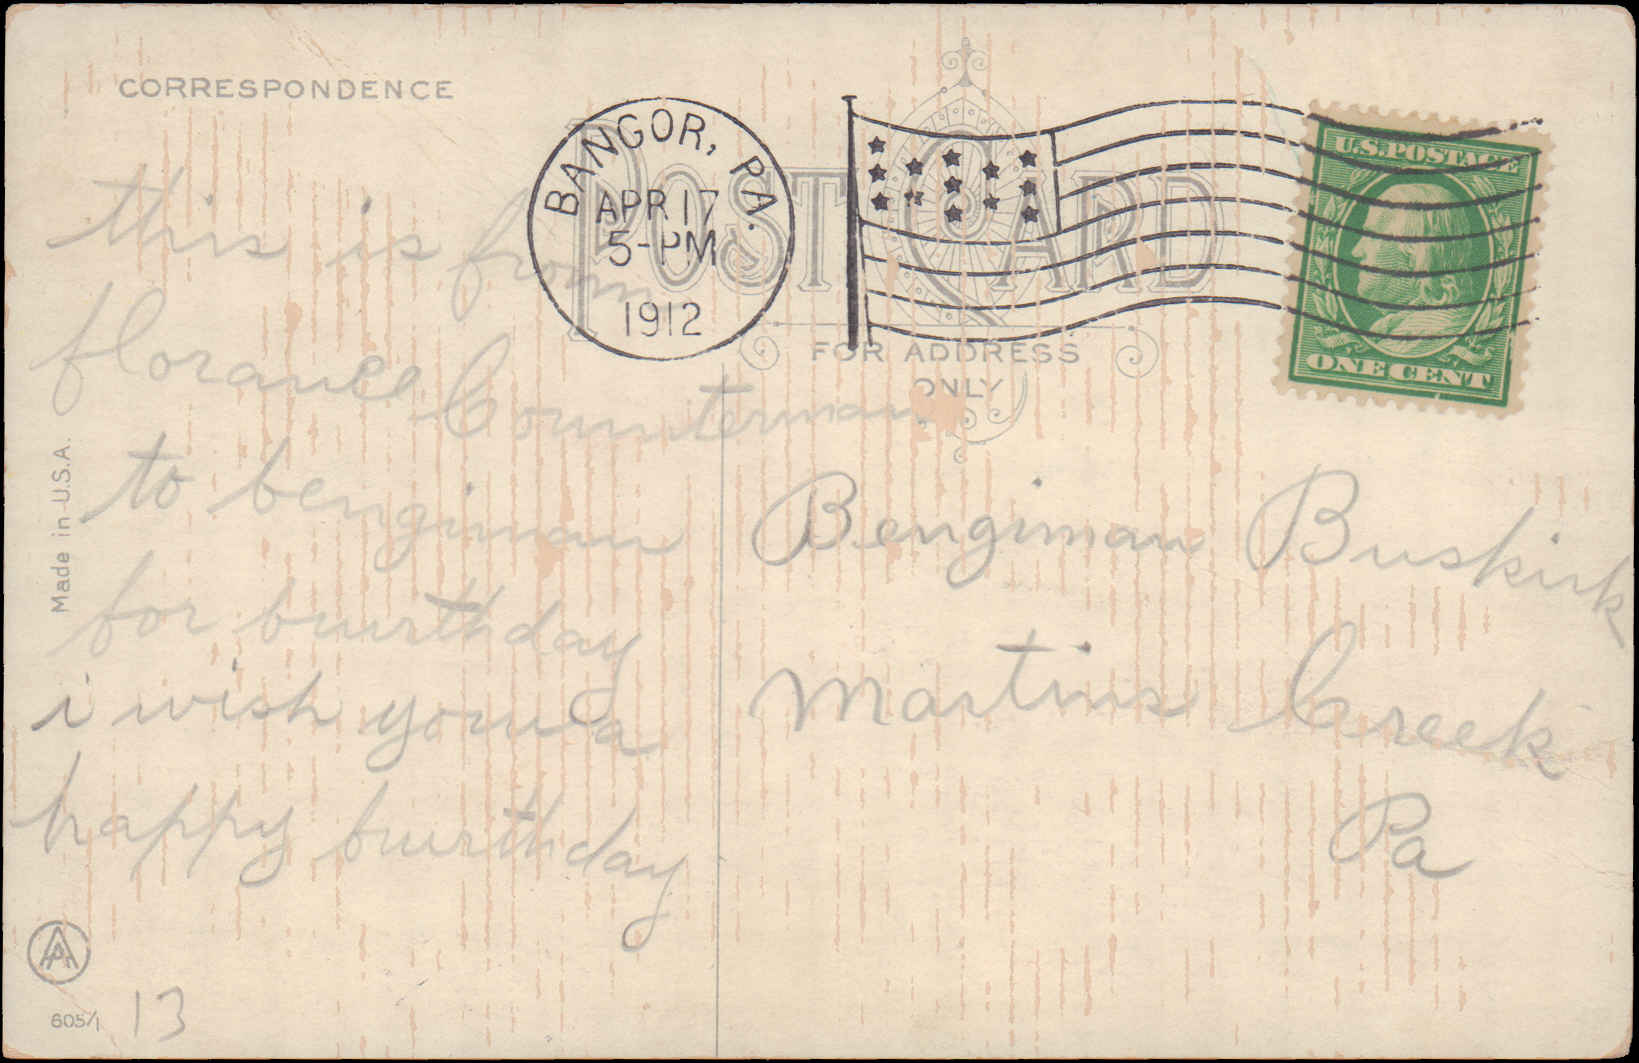 CORRESPONDENCE
POST CARD
FOR ADDRESS
ONLY
BANGOR, PA.
APR 17
5-PM
1912
U.S. POSTAGE
ONE CENT
this is from
florance Counterman
to bengiman
for buurthday
i wish youu a
happy buurthday
Bengiman Buskirk
Martins Creek
Pa
Made in U.S.A.
APP
605/1
13